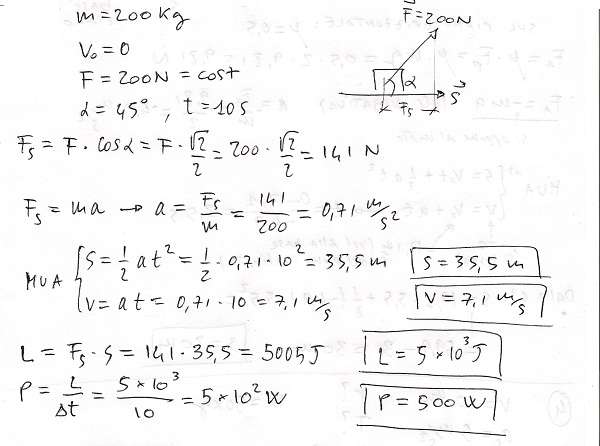 m = 200 Kg
V₀ = 0
F = 200N = cost
α = 45°, t = 10s
F⃗ = 200N
α
Fs
S⃗
Fs = F · cosα = F · √2/2 = 200 · √2/2 = 141 N
Fs = ma → a = Fs/m = 141/200 = 0,71 m/s²
MUA { S = 1/2 at² = 1/2 · 0,71 · 10² = 35,5 m S = 35,5 m
V = at = 0,71 · 10 = 7,1 m/s V = 7,1 m/s
L = Fs · S = 141 · 35,5 = 5005 J L = 5 × 10³ J
P = L/Δt = 5 × 10³/10 = 5 × 10² W P = 500 W